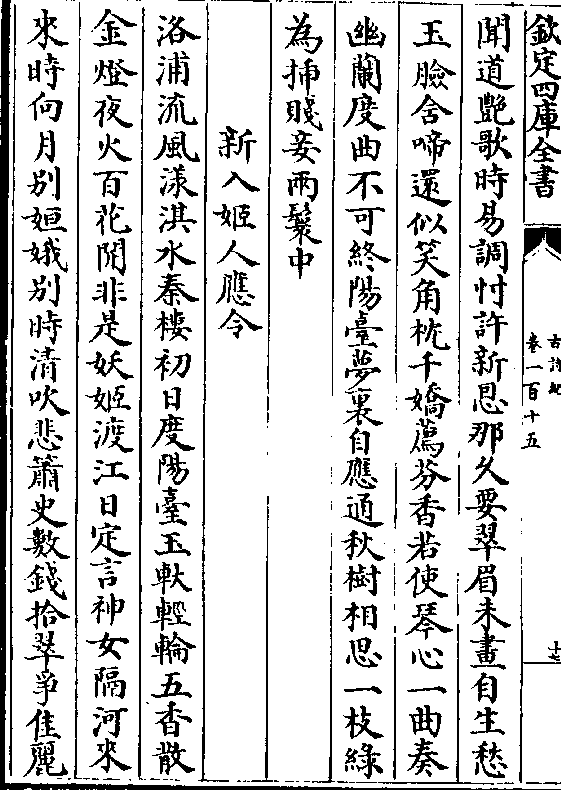 欽定四庫全書
古詩紀
卷一百十五
十七
聞道艷歌時易調忖許新恩那久要翠眉未畫自生愁
玉臉含啼還似笑角枕千嬌薦芬香若使琴心一曲奏
幽蘭度曲不可終陽臺夢裏自應通秋樹相思一枝綠
為揷賤妾兩鬟中
新入姬人應令
洛浦流風漾淇水秦樓初日度陽臺玉軑輕輪五香散
金燈夜火百花開非是妖姬渡江日定言神女隔河來
來時向月别姮娥别時清吹悲簫史數錢拾翠爭佳麗